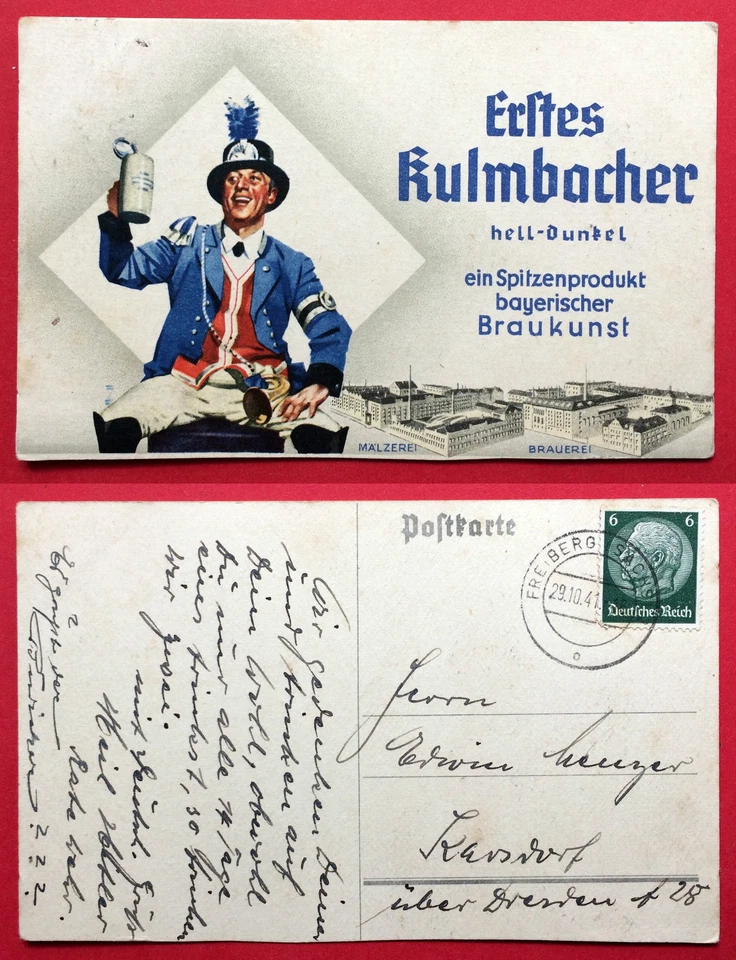 Erstes
Kulmbacher
hell-dunkel
ein Spitzenprodukt
bayerischer
Braukunst
MÄLZEREI
BRAUEREI
Postkarte
FREIBERG (SACHS)
29.10.41
6 6
Deutsches Reich
Herrn
Edwin Menzer
Karsdorf
über Dresden A 28
Wir gedenken Deiner
und trinken auf
Dein Wohl, obwohl
Du nur alle 14 Tage
eines trinkst, so trinken
wir zwei.
mit Deutsch. Gruß
Heil Hitler
Es grüßt der
2 2 2 2